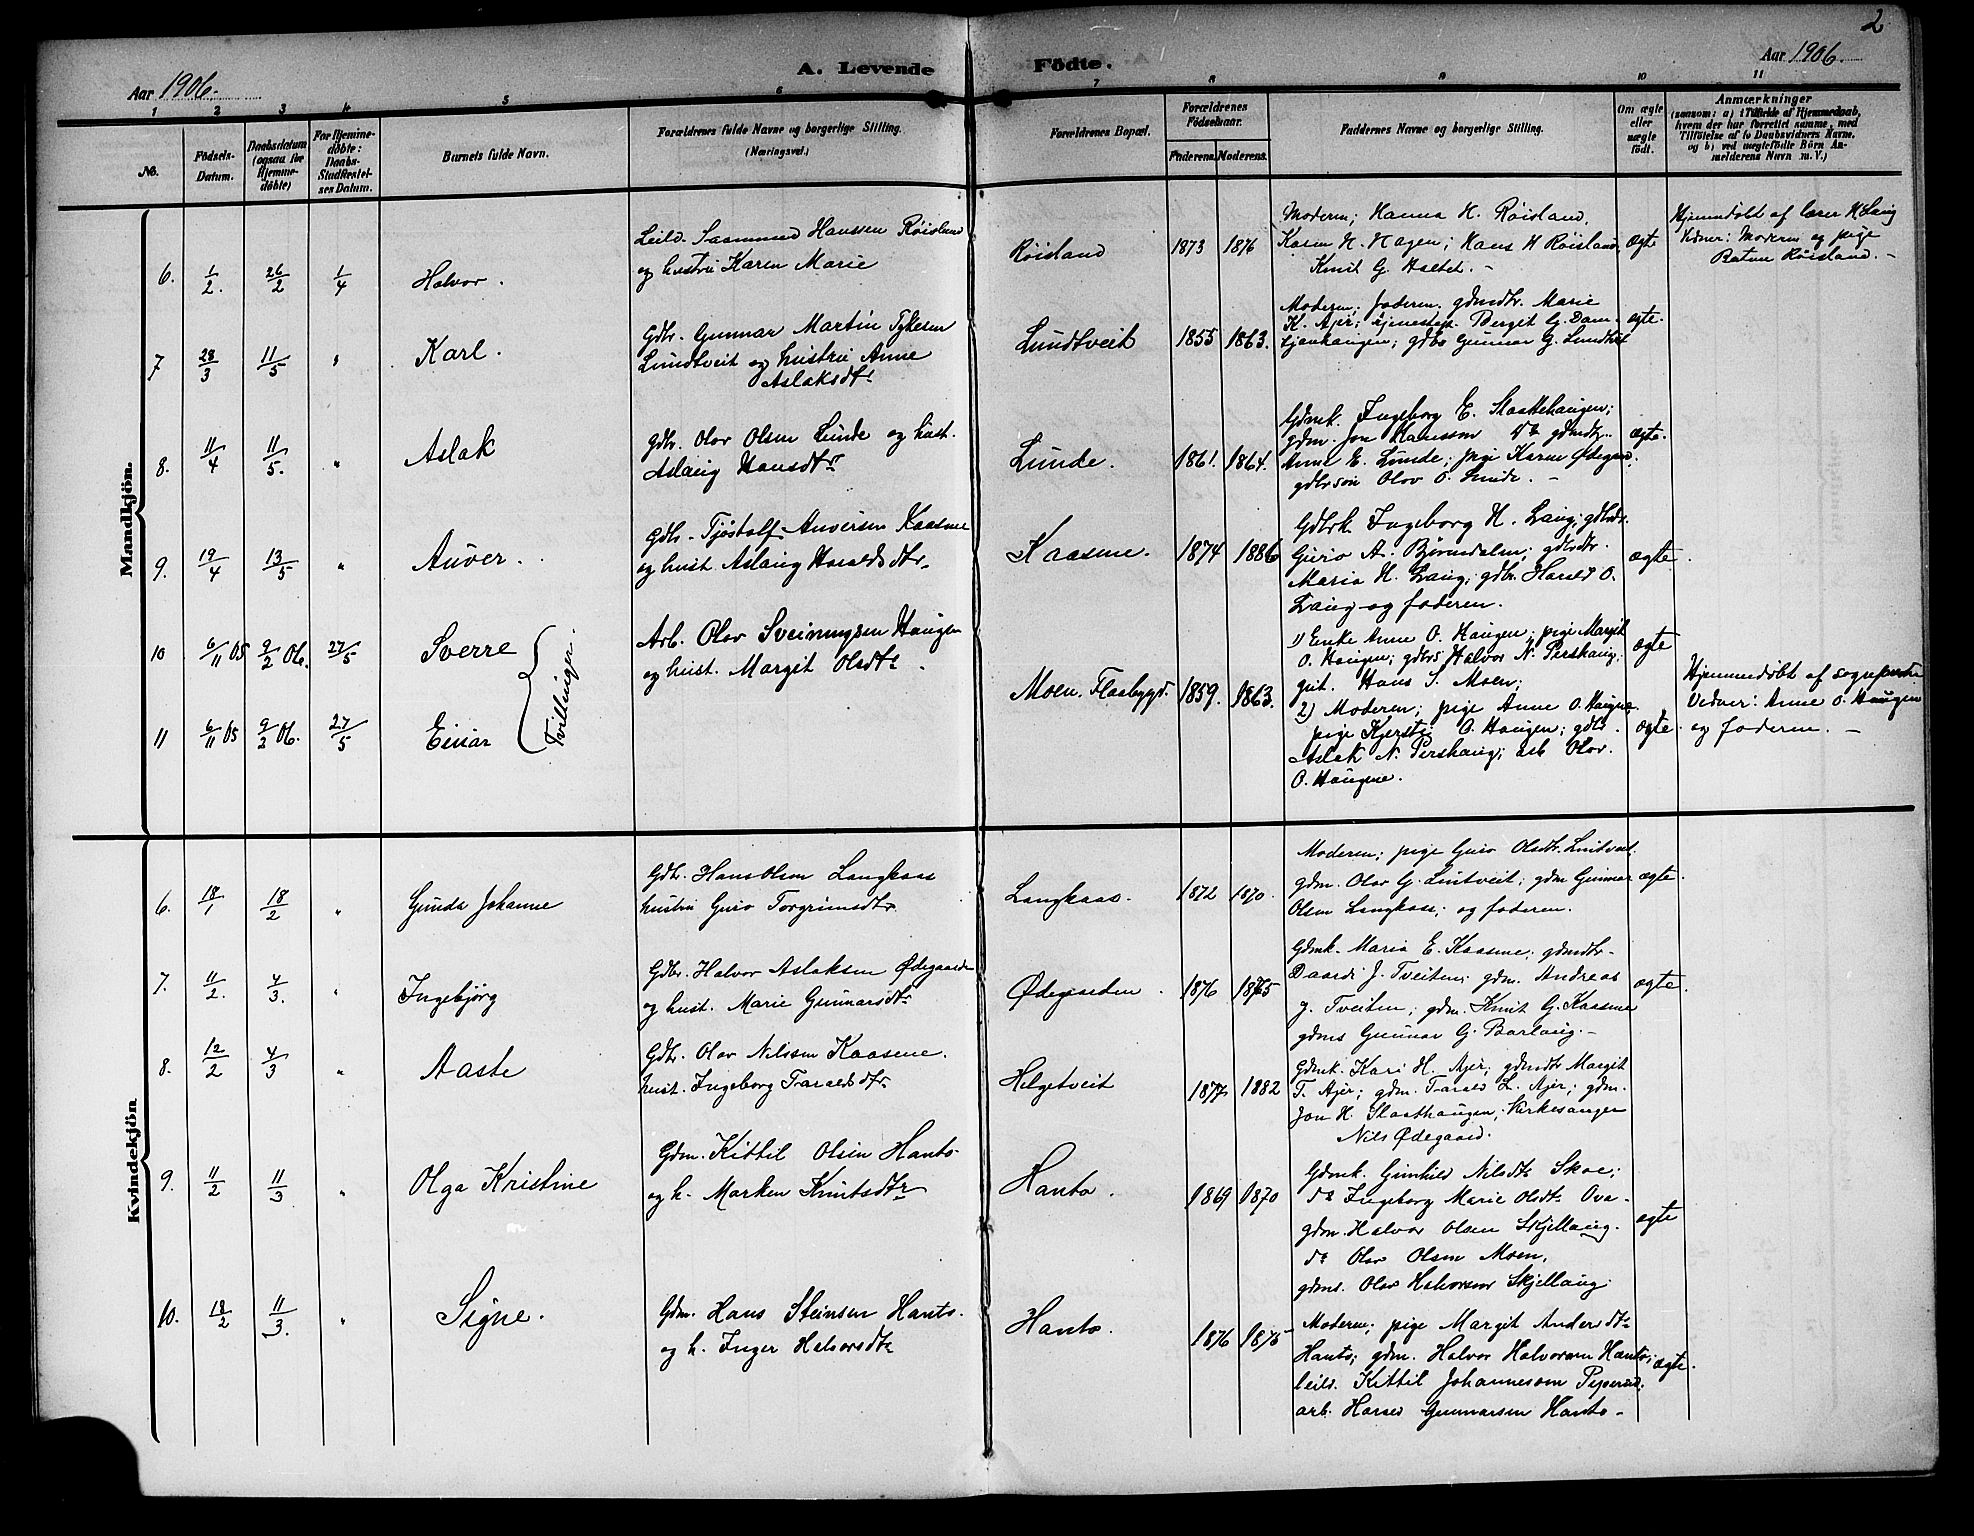 2
Aar 1906.
A. Levende
Födte.
Aar 1906.
1 2 3 4 5 6 7 8 9 10 11
No.
Födsels-
Datum.
Daabsdatum
(ogsaa for
Hjemme-
döbte)
For Hjemme-
döbte:
Daabs-
Stadfæstel-
ses Datum.
Barnets fulde Navn.
Forældrenes fulde Navne og borgerlige Stilling.
(Næringsvei.)
Forældrenes Bopæl.
Forældrenes
Födselsaar.
Faderens. Moderens.
Faddernes Navne og borgerlige Stilling.
Om ægte
eller
uægte
født.
Anmærkninger
(saasom: a) i Tilfælde af Hjemmedaab,
hvem der har forrettet samme, med
Tilföielse af to Daabsvidners Navne,
og b) ved uægtefödte Börn An-
melderens Navn m. V.)
Mandkjön.
6. 1/2. 26/2 1/4 Halvor.
Leild. Saamund Hanssen Röisland
og hustru Karen Marie
Röisland 1873 1876
Moderen; Hanna H. Röisland,
Karen N. Hagen; Hans H Röisland,
Knut G. Haatet. -
ægte
Hjemmedöbt af lærer H Lang
Vidner: Moderen og pige
Röisland. -
7 28/3 11/5 " Karl.
Gdbr. Gunnar Martin Tykesen
Lundtveit og hustru Anne
Aslaksdtr
Lundtveit 1855 1863.
Moderen; faderen; gdmdtr. Marie
K. Ajer; tjenestep. Bergit G. Dam-
tjonhaugen; gdbs Gunnar G. Lundtveit
ægte.
8. 11/4 11/5. " Aslak
Gdbr. Olov Olsen Lunde og hust.
Aslaug Hansdtr
Lunde. 1861. 1864.
Gdmk. Ingeborg E. Slaattehaugen;
gdm. Jon Hanssen do gdmdtr.
Anne E. Lunde; pige Karen Ødegard;
gdbrsön Olov O. Lunde. -
ægte.
9. 19/4 13/5 " Auver.
Gdbr. Tjöstolf Auversen Kaasene
og hust. Aslaug Haraldsdtr.
Kaasene. 1874 1886
Gdbrk. Ingeborg H. Laug; gdbrdr.
Guro A. Björndalen; gdbrdtr.
Maria H. Laug; gdbr. Harald O.
Laug og faderen.
ægte.
10 6/11 05 9/2 06. 27/5 Sverre
Tvillinger.
Arb. Olov Sveinungsen Haugen
og hust. Margit Olsdtr.
Moen. Flaabygd. 1859. 1863.
1) Enke Anne O. Haugen; pige Margit
O. Haugen; gdbrs Halvor N. Pershaug;
gut. Hans S. Moen;
ægte
11 6/11 05 9/2 06. 27/5 Einar
2) Moderen; pige Anne O. Haugene.
pige Kjersti O. Haugen; gdbr.
Aslak N. Pershaug; arb Olov.
O. Haugene.
ægte.
Hjemmedöbt af sognepresten
Vidner: Anne O. Haugen
og faderen. -
Kvindekjön
6. 18/1 18/2 " Gunda Johanne
Gdb. Hans Olsen Langkaas
hustru Guro Torgrimsdtr.
Langkaas. 1872 1870.
Moderen; pige Guro Olsdtr. Lintveit;
gdm. Olov G. Lintveit; gdm Gunnar
Olsen Langkaas; og faderen.
ægte.
7. 11/2. 4/3. " Ingebjörg
Gdbr. Halvor Aslaksen Ødegaarden
og hust. Marie Gunnarsdtr
Ødegaarden. 1876 1875
Gdmk. Maria E. Kaasene; gdmdtr.
J. Tveiten; gdm. Andreas
J. Tveiten; gdm. Knut G. Kaasene
gdms Gunnar G. Barlaug. -
ægte.
8. 12/2 4/3 " Aaste
Gdbr. Olav Nilssen Kaasene.
hust. Ingeborg Taraldsdtr
Helgetveit 1877 1882
Gdmk. Kari H. Ajer; gdmdtr Margit
T. Ajer; gdm. Tarald L. Ajer; gdm.
Jon H. Slaathaugen; Kirkesanger
Nils Ødegaard.
9. 11/2 11/3 " Olga Kristine
Gdm. Kittil Olsen Hanto
og h. Marken Knutsdtr
Hanto. 1869 1870
Gdmk. Gunhild Nilsdtr Skoe;
do Ingeborg Marie Olsdtr Ova.
gdm. Halvor Olsen Skjellaug.
do Olov Olsen Moen,
gdms. Olov Halvorsen Skjellaug.
ægte
10. 18/2 11/3. " Signe.
Gdm. Hans Steinsen Hanto.
og h. Inger Halvorsdtr
Hanto. 1876 1875
Moderen; pige Margit Andersdtr
Hanto; gdm. Halvor Halvorsen Hanto;
leild. Kittil Johannessen
arb. Gunnarsen Hanto -
ægte.